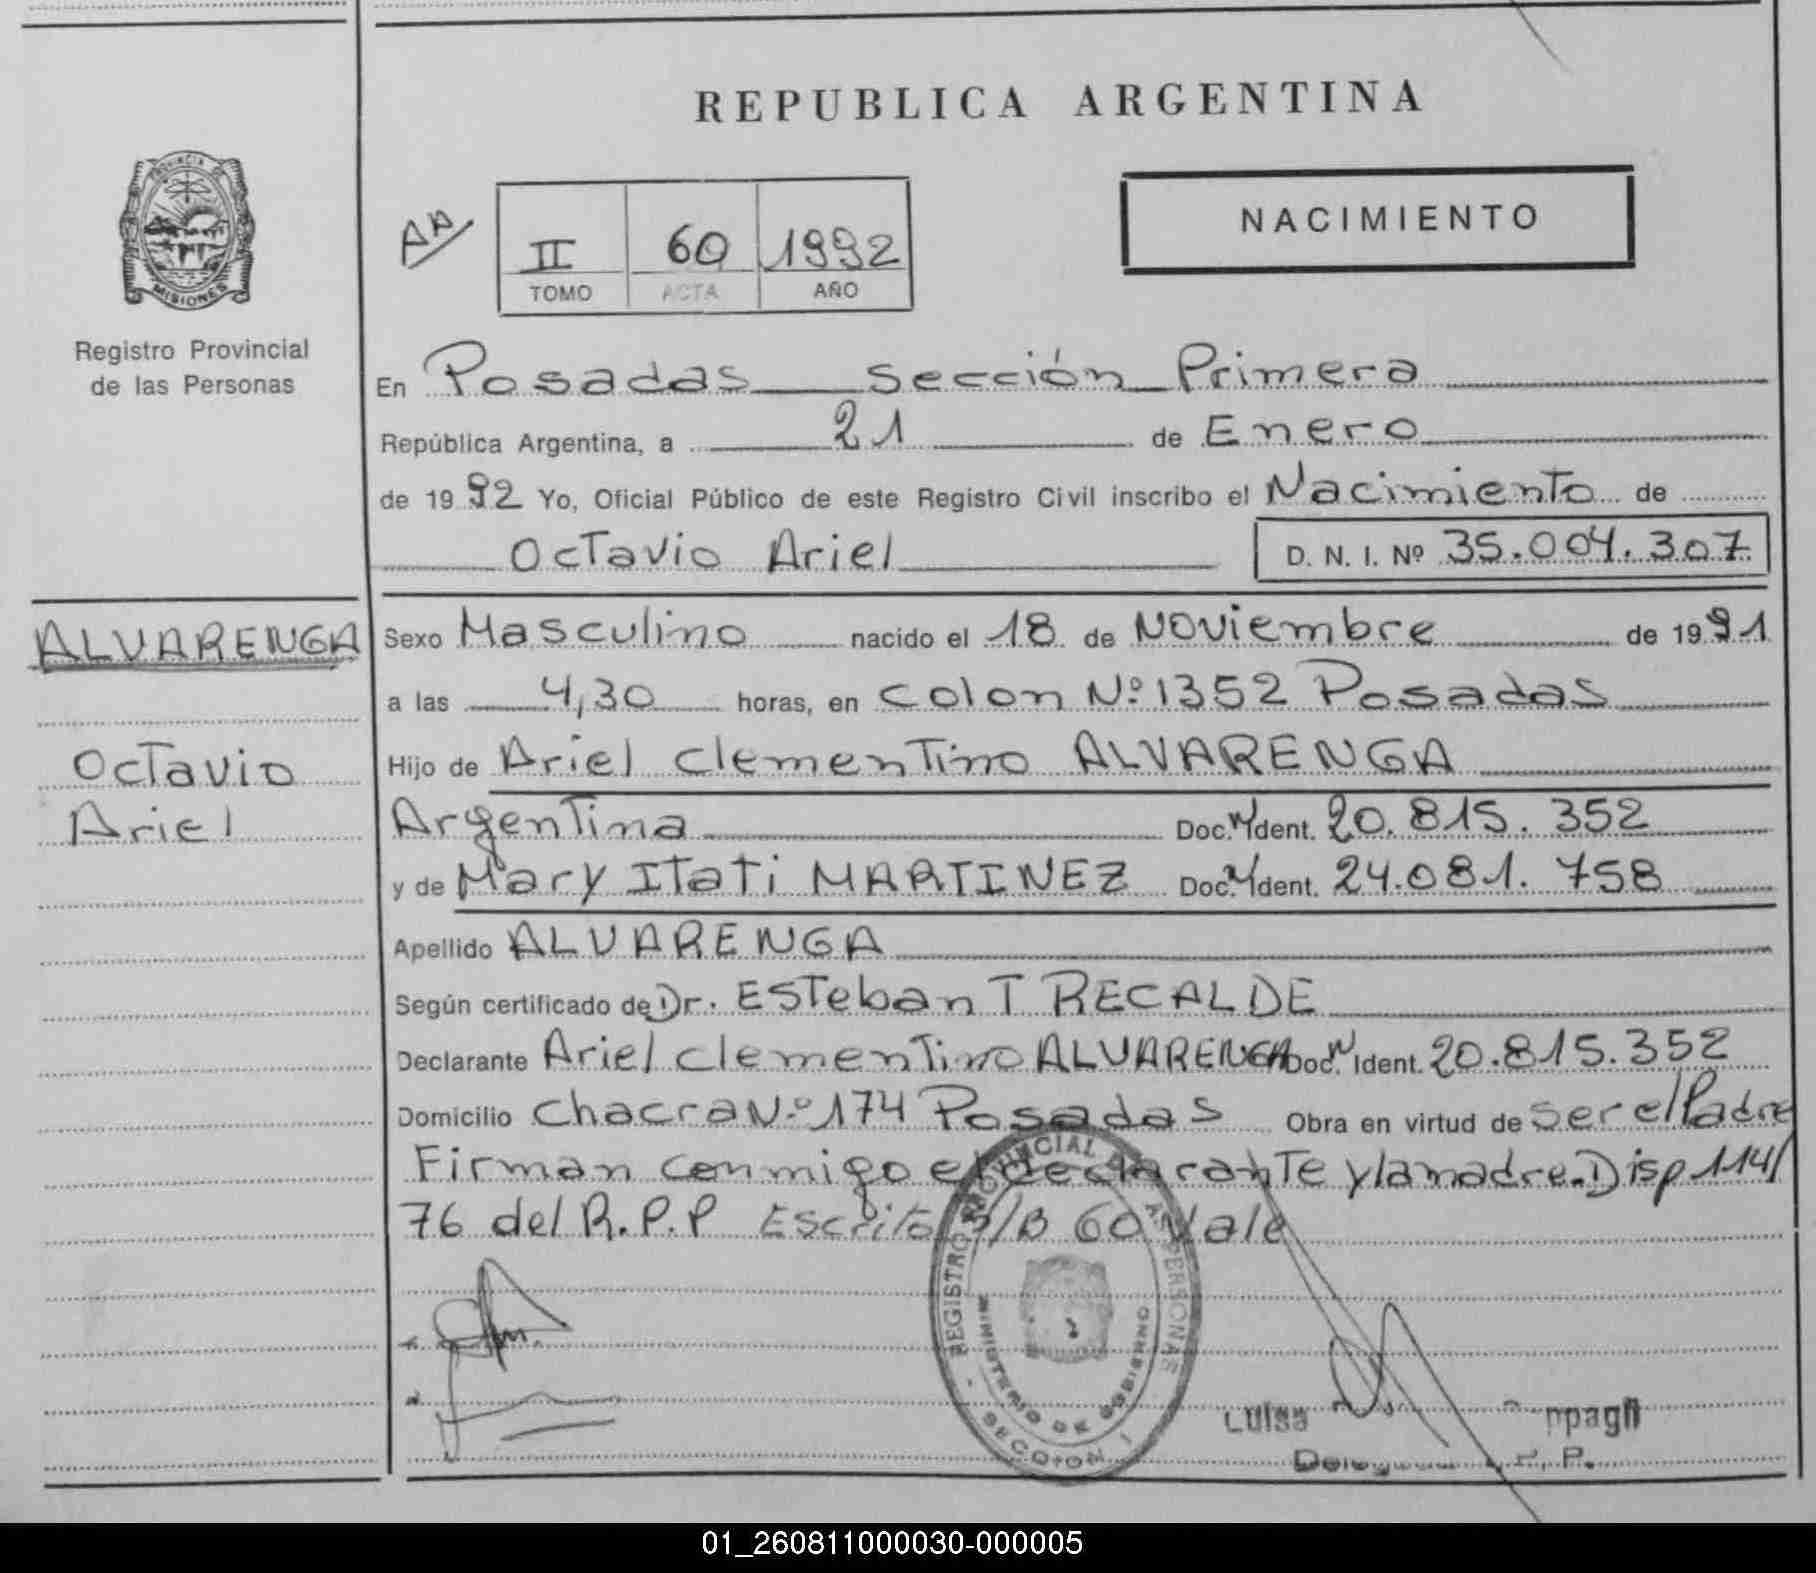 REPUBLICA ARGENTINA
PROVINCIA DE
MISIONES
Registro Provincial
de las Personas
AA
II 60 1992
TOMO ACTA AÑO
NACIMIENTO
En Posadas Sección Primera
República Argentina, a 21 de Enero
de 1992 Yo, Oficial Público de este Registro Civil inscribo el Nacimiento de
Octavio Ariel D. N. I. Nº 35.004.307
ALVARENGA
Octavio
Ariel
Sexo Masculino nacido el 18 de Noviembre de 1991
a las 4,30 horas, en Colon Nº 1352 Posadas
Hijo de Ariel Clementino ALVARENGA
Argentina Doc. N Ident. 20.815.352
y de Mary Itati MARTINEZ Doc. N Ident. 24.081.758
Apellido ALVARENGA
Según certificado de Dr. Esteban T RECALDE
Declarante Ariel Clementino ALVARENGA Doc. N Ident. 20.815.352
Domicilio Chacra Nº 174 Posadas Obra en virtud de ser el Padre
Firman conmigo el declarante y la madre. Disp 114/
76 del R.P.P Escrito S/B 60 Vale
REGISTRO PROVINCIAL DE LAS PERSONAS
MINISTERIO DE GOBIERNO
- SECCION I -
Luisa
P.
01_260811000030-000005